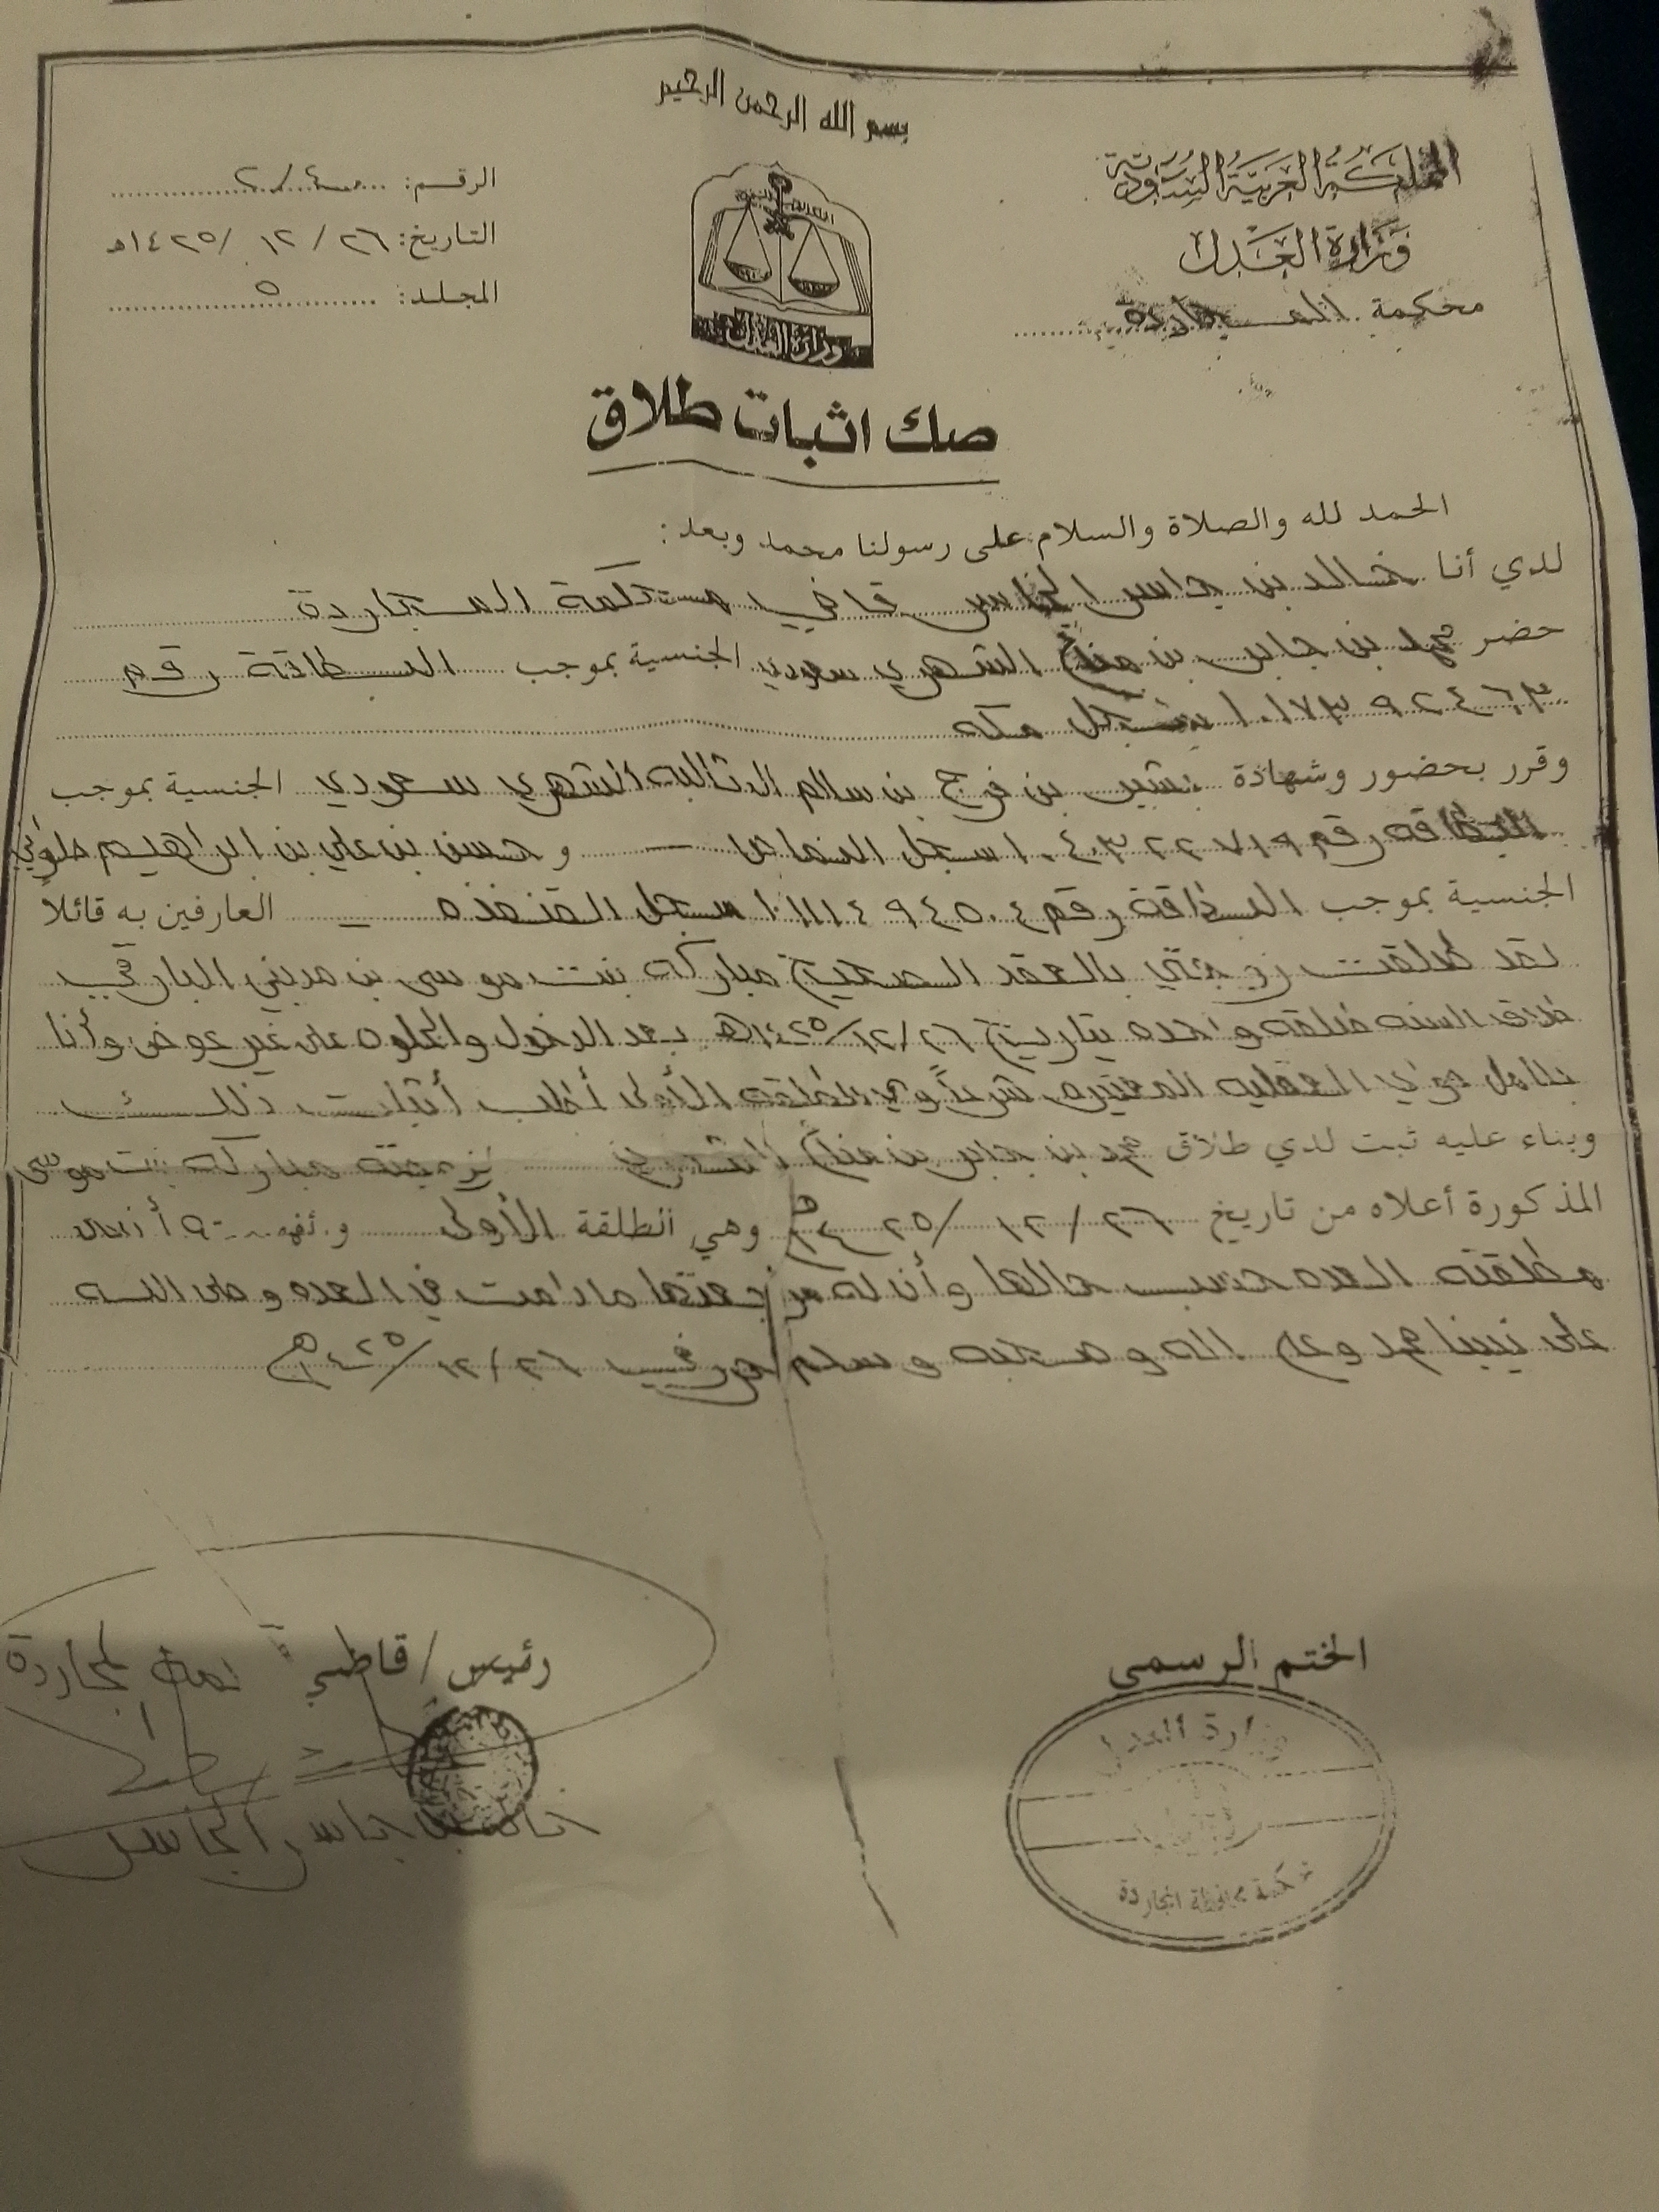 بسم الله الرحمن الرحيم
المملكة العربية السعودية
وزارة العدل
محكمة المجاردة
الرقم: ٢/٤
التاريخ: ٢٦ / ١٢ / ١٤٢٥هـ
المجلد: ٥
وزارة العدل
صك اثبات طلاق
الحمد لله والصلاة والسلام على رسولنا محمد وبعد:
لدي أنا خالد بن جاسر الجاسر قاضي محكمة المجاردة
حضر محمد بن جابر بن مناع الشهري سعودي الجنسية بموجب البطاقة رقم
١٠١٧٣٩٢٤٦٣ سجل مكه
وقرر بحضور وشهادة بشير بن فرج بن سالم الشهري سعودي الجنسية بموجب
البطاقه رقم ١٠٤٠٣٢٢٧١٩ سجل النماص و حسن بن علي بن ابراهيم حلوي
الجنسية بموجب البطاقة رقم ١٠١١١٤٩٤٥٠٤ سجل القنفذه العارفين به قائلاً
لقد طلقت زوجتي بالعقد الصحيح مباركه بنت موسى بن مديني البارقي
طلاق السنه طلقه واحده بتاريخ ٢٦/١٢/١٤٢٥هـ بعد الدخول والخلوه على غير عوض وأنا
بكامل قواي العقليه المعتبره شرعاً وهي الطلقه الأولى أطلب أثبات ذلك
وبناء عليه ثبت لدي طلاق محمد بن جابر بن مناع الشهري لزوجته مباركه بنت موسى
المذكورة أعلاه من تاريخ ٢٦ / ١٢ / ١٤٢٥هـ وهي الطلقة الأولى أن على
مطلقته العده حسب حالها وأن له مراجعتها مادامت في العده وصلى الله
على نبينا محمد وعلى اله وصحبه وسلم حرر في ٢٦/١٢/١٤٢٥هـ
الختم الرسمي
رئيس/قاضي محكمة المجاردة
خالد بن جاسر الجاسر
وزارة العدل
محكمة محافظة المجاردة